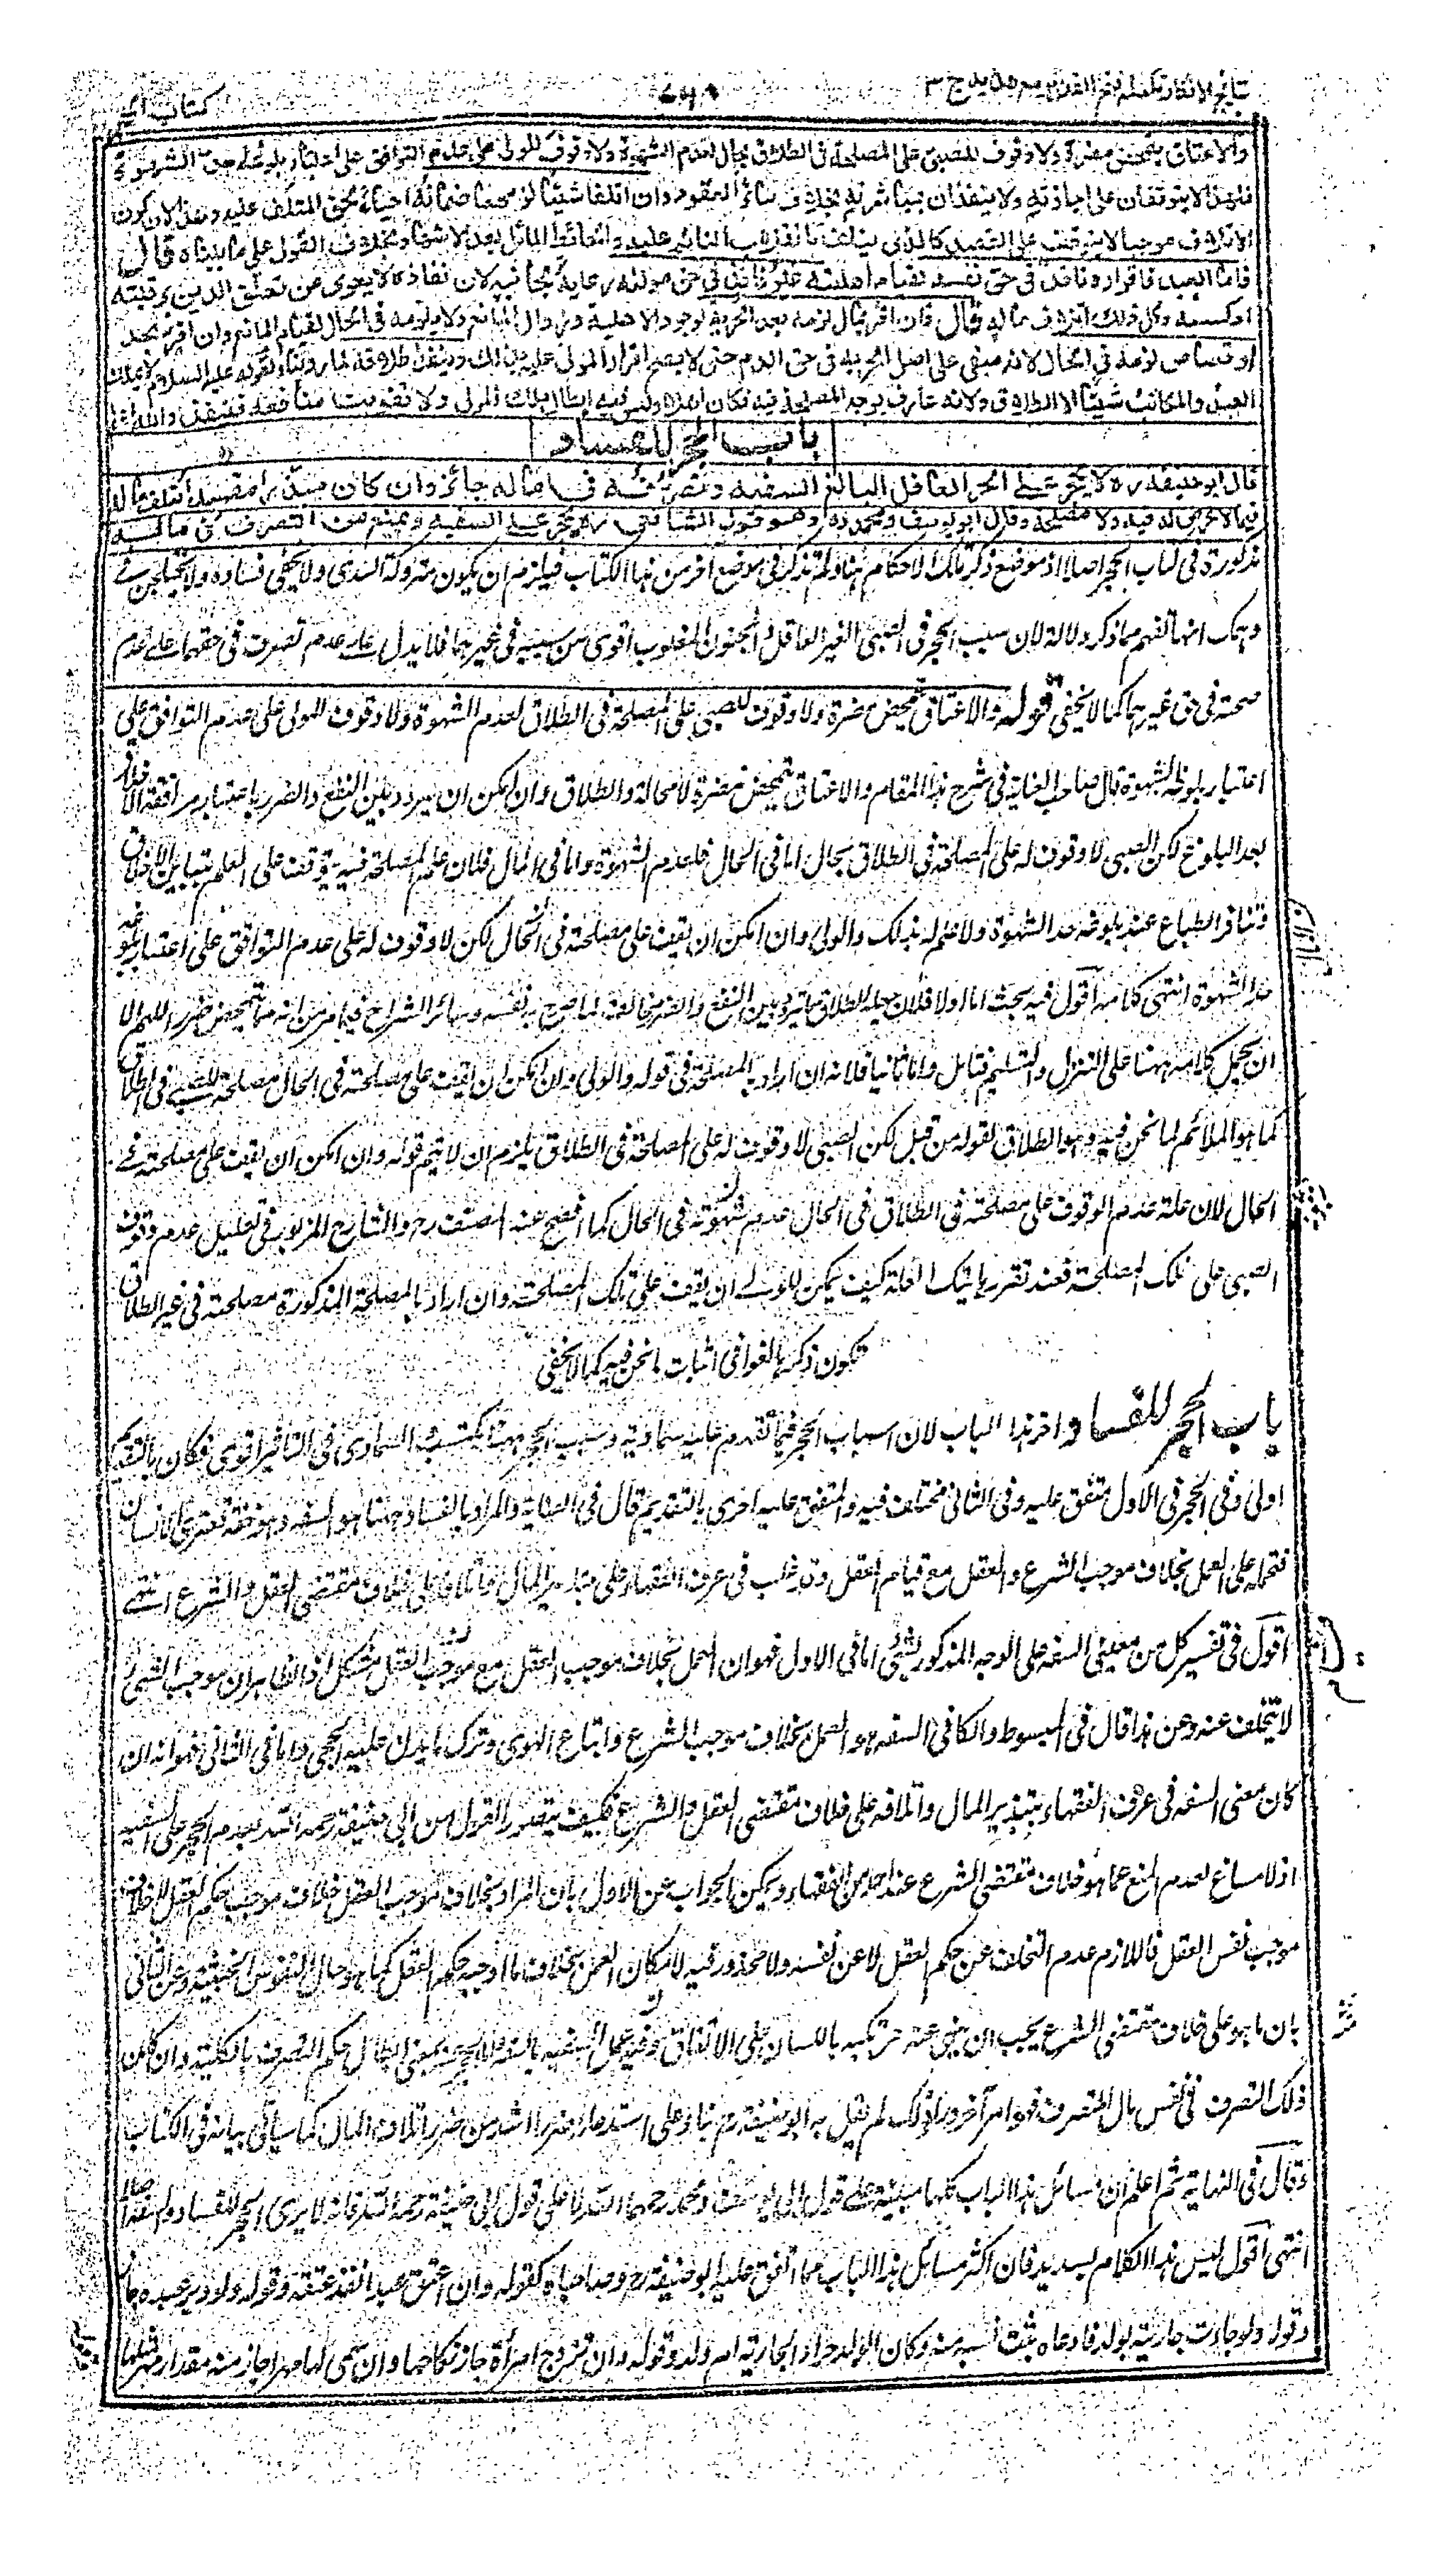 نتائج الافكار تكملة فتح القدير مع هدايه ج ٣
كتاب الحجر
والاعتاق يتمحض مضرة ولا وقوف للصبي على المصلحة في الطلاق بحال لعدم الشهوة ولا وقوف للولى على عدم التوافق على اعتبار بلوغه حد الشهوة
فلهذا لا يتوقفان على اجازته ولا ينفذان بمباشرته بخلاف سائر العقود وان اتلفا شيئا لزمهما ضمانه احياء لحق المتلف عليه وهذا لان كون
الاتلاف موجبا لا يتوقف على القصد كالذي يتلف بانقلاب النائم عليه والحائط المائل بعد الاشهاد بخلاف القول على ما بيناه قال
فاما العبد فاقراره نافذ في حق نفسه لقيام اهليته غير نافذ في حق مولاه رعاية لجانبه لان نفاذه لا يعرى عن تعلق الدين برقبته
او كسبه وكل ذلك اتلاف ماله قال فان اقر بمال لزمه بعد الحرية لوجود الاهلية وزوال المانع ولا يلزمه في الحال لقيام المانع وان اقر بحد
او قصاص لزمه في الحال لانه مبقى على اصل الحرية في حق الدم حتى لا يصح اقرار المولى عليه بذلك وينفذ طلاقه لما روينا ولقوله عليه السلام لا يملك
العبد والمكاتب شيئا الا الطلاق ولانه عارف بوجه المصلحة فيه فكان اهلا وليس فيه ابطال ملك المولى ولا تفويت منافعه فينفذ والله اعلم
باب الحجر للفساد
قال ابو حنيفه ره لا يحجر على الحر العاقل البالغ السفيه وتصرفه في ماله جائز وان كان مبذرا مفسدا يتلف ماله
فيما لا غرض له فيه ولا مصلحة وقال ابو يوسف ومحمد ره وهو قول الشافعى ره يحجر على السفيه ويمنع من التصرف في ماله
مذكورة في كتاب الحجر اصلا اذ موضع ذكر تلك الاحكام ههنا ولم تذكر في موضع آخر من هذا الكتاب فيلزم ان يكون متروكة السدى ولا يخفى فساده ولا يختلجن في
وهمك انها تفهم مما ذكر دلالة لان سبب الحجر في الصبى الغير العاقل والمجنون المغلوب اقوى من سببه في غيرهما فلا يدل على عدم تصرف في حقهما على عدم
صحته في حق غيرهما كما لا يخفى قوله والاعتاق يتمحض مضرة ولا وقوف للصبى على المصلحة في الطلاق لعدم الشهوة ولا وقوف للولى على عدم التوافق على
اعتبار بلوغه الشهوة قال صاحب العناية في شرح هذا المقام والاعتاق يتمحض مضرة لا محالة والطلاق وان امكن ان يتردد بين النفع والضرر باعتبار موافقة الاخلاق
بعد البلوغ لكن الصبى لا وقوف له على المصلحة في الطلاق بحال اما في الحال فلعدم الشهوة واما في المآل فلان علم المصلحة فيه يتوقف على العلم بتباين الاخلاق
وتنافر الطباع عند بلوغه حد الشهوة ولا علم له بذلك والولى وان امكن ان يقف على مصلحته في الحال لكن لا وقوف له على عدم التوافق على اعتبار بلوغه
حد الشهوة انتهى كلامه اقول فيه بحث اما اولا فلان جعله الطلاق مما يتردد بين النفع والضرر مخالف لما صرح به نفسه وسائر الشراح فيما مر من انه مما يتمحض ضررا اللهم الا
ان يحمل كلامه ههنا على التنزل والتسليم فتامل واما ثانيا فلانه ان اراد بالمصلحة في قوله والولى وان امكن ان يقف على مصلحته في الحال مصلحة الصبى في الطلاق
كما هو الملائم لما نحن فيه وهو الطلاق لقوله من قبل لكن الصبى لا وقوف له على المصلحة في الطلاق يلزم ان لا يتم قوله وان امكن ان يقف على مصلحته في
الحال لان علة عدم الوقوف على مصلحته في الطلاق في الحال عدم شهوته في الحال كما افصح عنه المصنف ره والشارح المزبور في تعليل عدم وقوف
الصبى على تلك المصلحة فعند تقرر هاتيك العلة كيف يمكن للولى ان يقف على تلك المصلحة وان اراد بالمصلحة المذكورة مصلحته في غير الطلاق
يكون ذكرها لغوا في اثبات ما نحن فيه كما لا يخفى
باب الحجر للفساد اخر هذا الباب لان اسباب الحجر فيما تقدم عليه سماوية وسبب الحجر ههنا مكتسب والسماوى في التاثير اقوى فكان بالتقديم
اولى وفي الحجر في الاول متفق عليه وفي الثانى مختلف فيه والمتفق عليه احرى بالتقديم قال في العناية والمراد بالفساد ههنا هو السفه وهو خفة تعترى الانسان
فتحمله على العمل بخلاف موجب الشرع والعقل مع قيام العقل وقد غلب في عرف الفقهاء على تبذير المال واتلافه على خلاف مقتضى العقل والشرع انتهى
اقول في تفسير كل من معنيى السفه على الوجه المذكور شئ اما في الاول فهو ان العمل بخلاف موجب العقل مع موجب العقل مشكل اذ الظاهر ان موجب الشئ
لا يتخلف عنه وعن هذا قال في المبسوط والكافى السفه هو العمل بخلاف موجب الشرع واتباع الهوى وترك ما يدل عليه الحجى واما في الثانى فهو انه ان
كان معنى السفه في عرف الفقهاء تبذير المال واتلافه على خلاف مقتضى العقل والشرع فكيف يتصور القول من ابى حنيفة رحمه الله بعدم الحجر على السفيه
اذ لا مساغ لعدم المنع عما هو خلاف مقتضى الشرع عند احد من الفقهاء ويمكن الجواب عن الاول بان المراد بخلاف موجب العقل خلاف موجب حكم العقل لا خلاف
موجب نفس العقل فاللازم عدم التخلف عن حكم العقل لا عن نفسه ولا محذور فيه لامكان العمل بخلاف ما اوجبه حكم العقل كما هو حال النفوس الخبيثة وعن الثانى
بان ما هو على خلاف مقتضى الشرع يجب ان ينهى عنه مرتكبه باللسان على الاتفاق
ذلك التصرف في نفس مال المتصرف فهو امر آخر ورا ذلك لم يقل به ابو حنيفة ره بناء على استلزامه ضررا اشد من ضرر اتلاف المال كما سيأتى بيانه في الكتاب
وقال في النهاية ثم اعلم ان مسائل هذا الباب كلها مبنية على قول ابى يوسف ومحمد رحمهما الله لا على قول ابى حنيفة رحمه الله فانه لا يرى الحجر للفساد والسفه اصلا
انتهى اقول ليس هذا الكلام بسديد فان اكثر مسائل هذا الباب مما اتفق عليه ابو حنيفة ره وصاحباه كقوله وان اعتق عبدا نفذ عتقه وقوله ولو دبر عبده جاز
وقوله ولو جاءت جاريته بولد فادعاه يثبت نسبه منه وكان الولد حرا والجارية ام ولد وقوله وان تزوج امرأة جاز نكاحها وان سمى لها مهرا جاز منه مقدار مهر مثلها